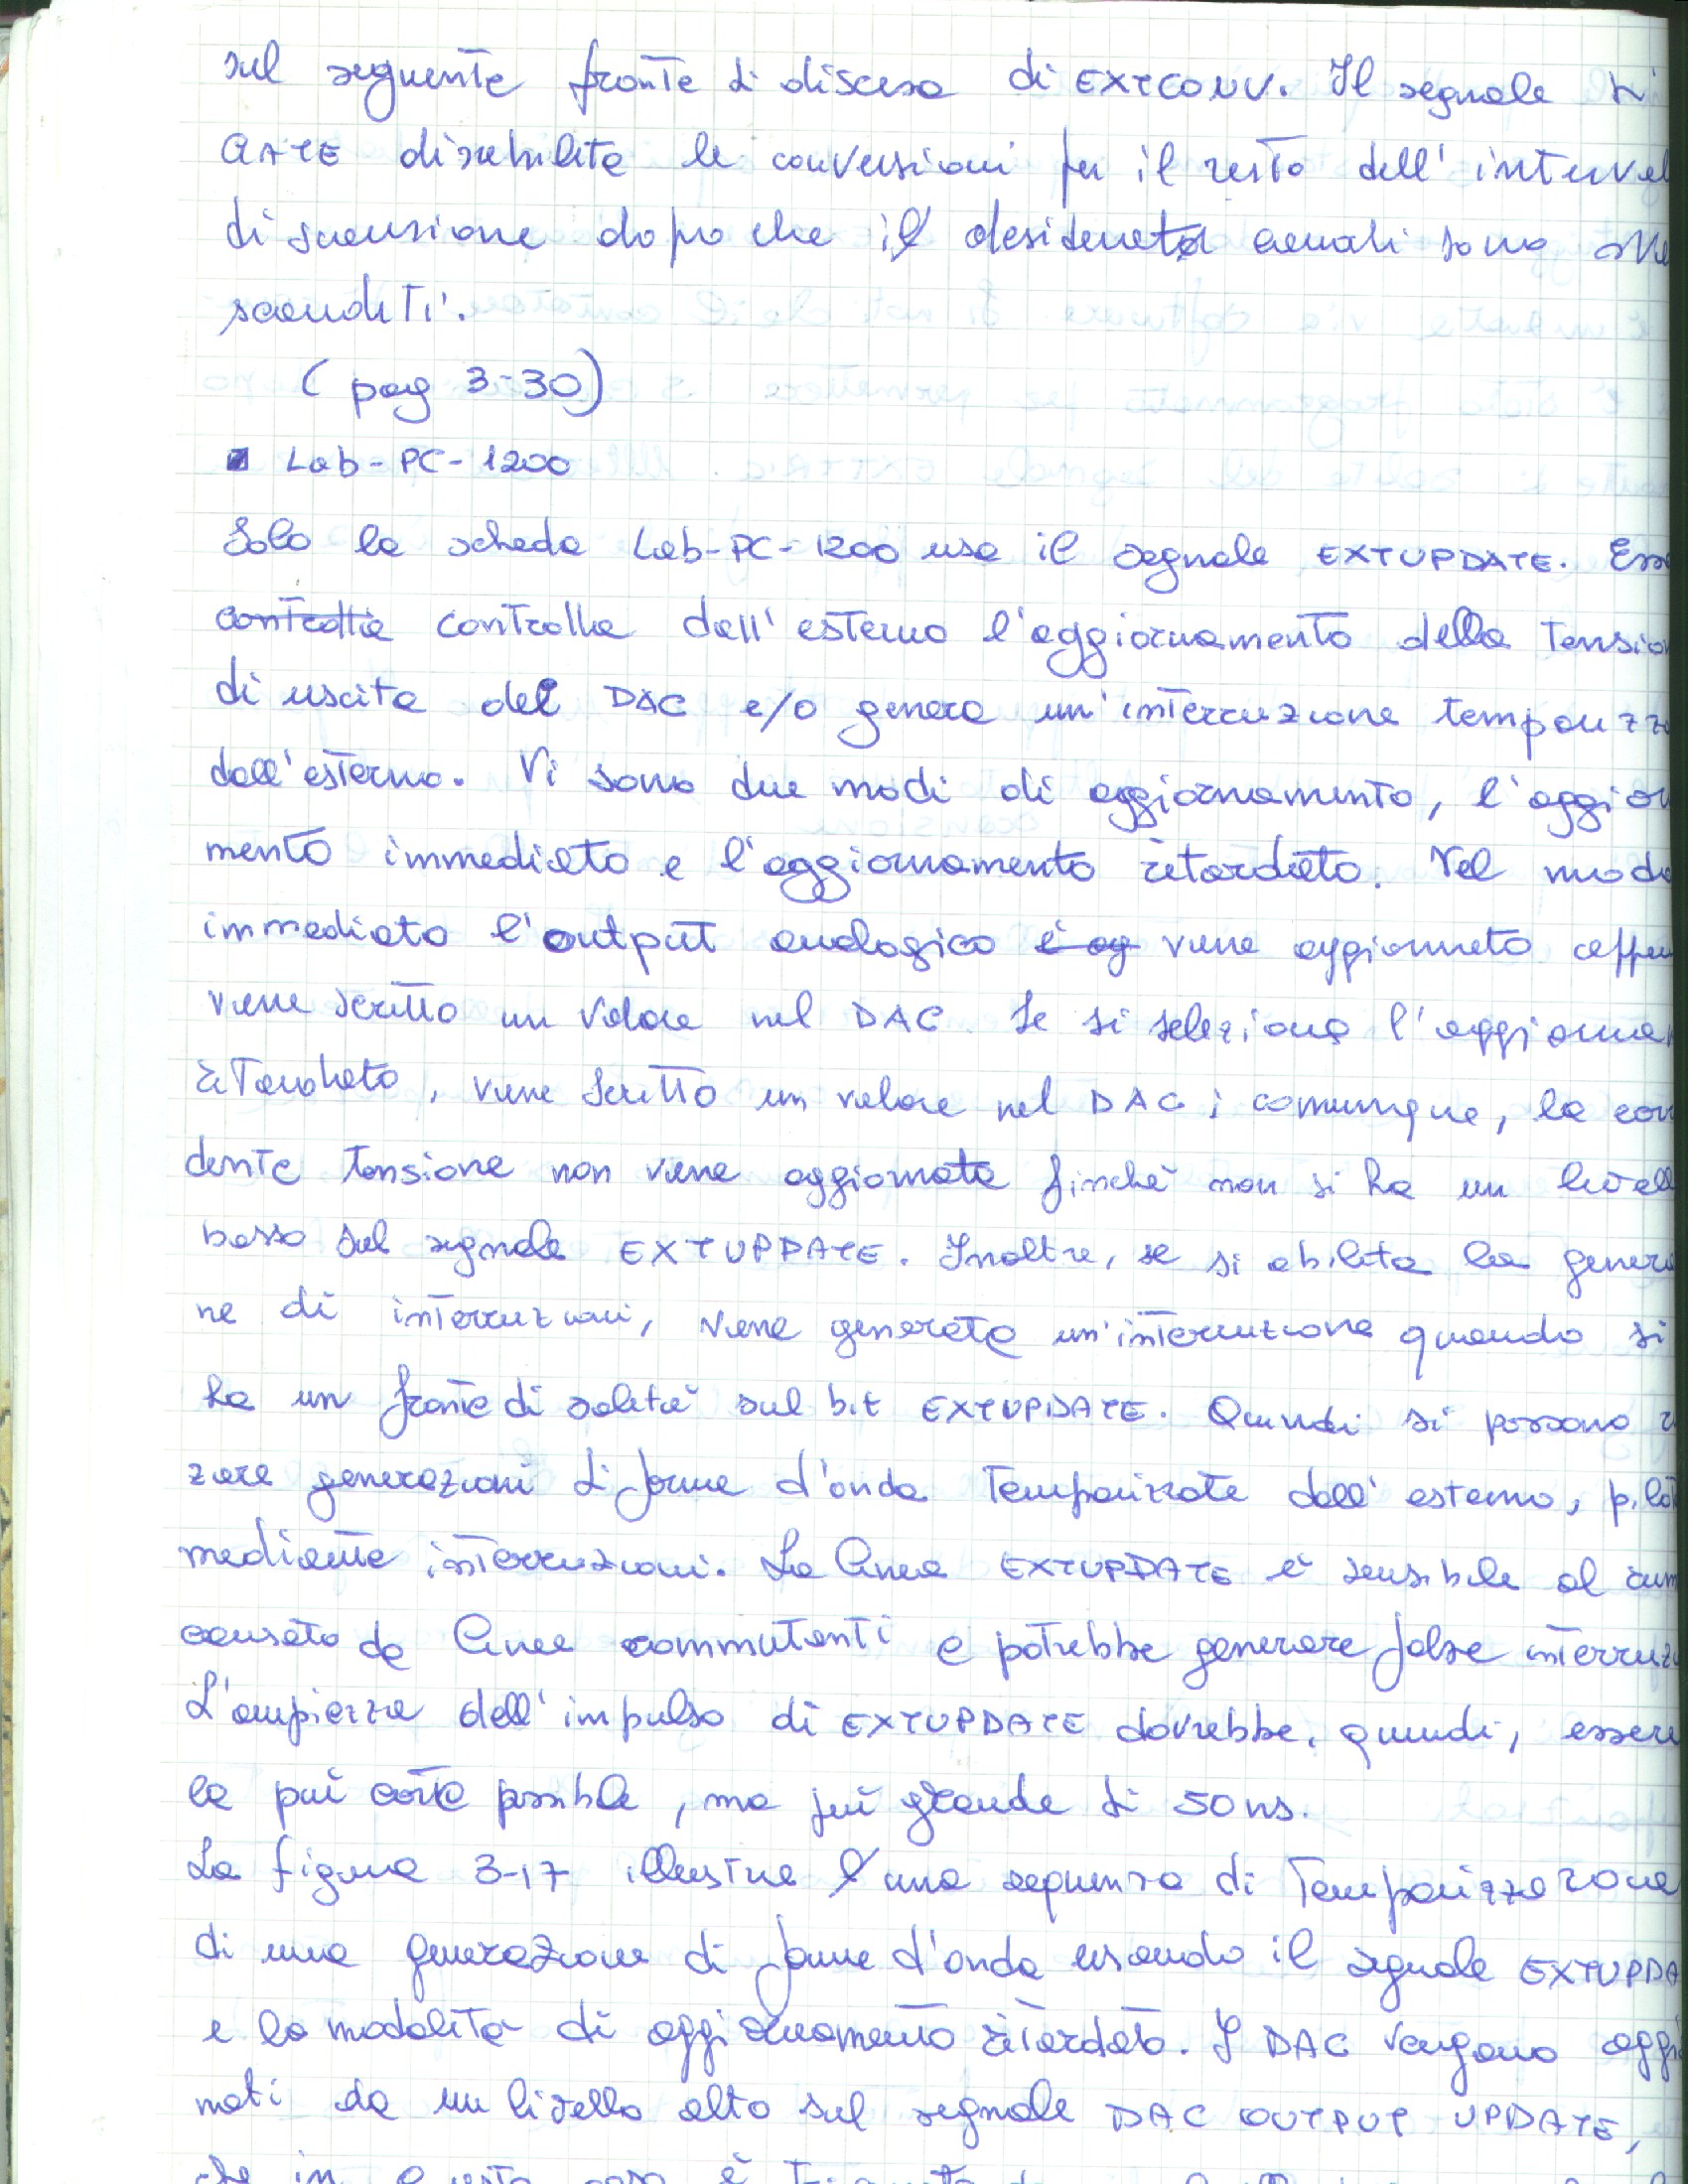 sul seguente fronte di discesa di EXTCONV. Il segnale di
GATE disabilita le conversioni per il resto dell'interval
di scansione dopo che il desiderata canali sono
scanditi.
(pag 3-30)
▪ Lab-PC-1200
Solo la scheda Lab-PC-1200 usa il segnale EXTUPDATE. Ess
controllia controlla dall'esterno l'aggiornamento della tension
di uscita del DAC e/o genera un'interruzione temporizza
dall'esterno. Vi sono due modi di aggiornamento, l'aggior
mento immediato e l'aggiornamento ritardato. Nel modo
immediato l'output analogico è ag viene aggiornato appen
viene scritto un valore nel DAC. Se si seleziona l'aggiorna
ritardato, viene scritto un valore nel DAC; comunque, la cor
dente tensione non viene aggiornata finché non si ha un livell
basso sul segnale EXTUPDATE. Inoltre, se si abilita la genera
ne di interruzioni, viene generata un'interruzione quando si
ha un fronte di salita sul bit EXTUPDATE. Quindi si possono
zare generazioni di forme d'onda temporizzate dall'esterno, pilot
mediante interruzioni. La linea EXTUPDATE è sensibile al rum
causato da linee commutanti e potrebbe generare false interruz
L'ampiezza dell'impulso di EXTUPDATE dovrebbe, quindi, essere
la più corta possibile, ma più grande di 50 ns.
La figura 3-17 illustra l'una sequenza di temporizzazione
di una generazione di forme d'onda usando il segnale EXTUPDA
e la modalità di aggiornamento ritardato. I DAC vengono aggi
nati da un livello alto sul segnale DAC OUTPUT UPDATE,
che in questo caso è